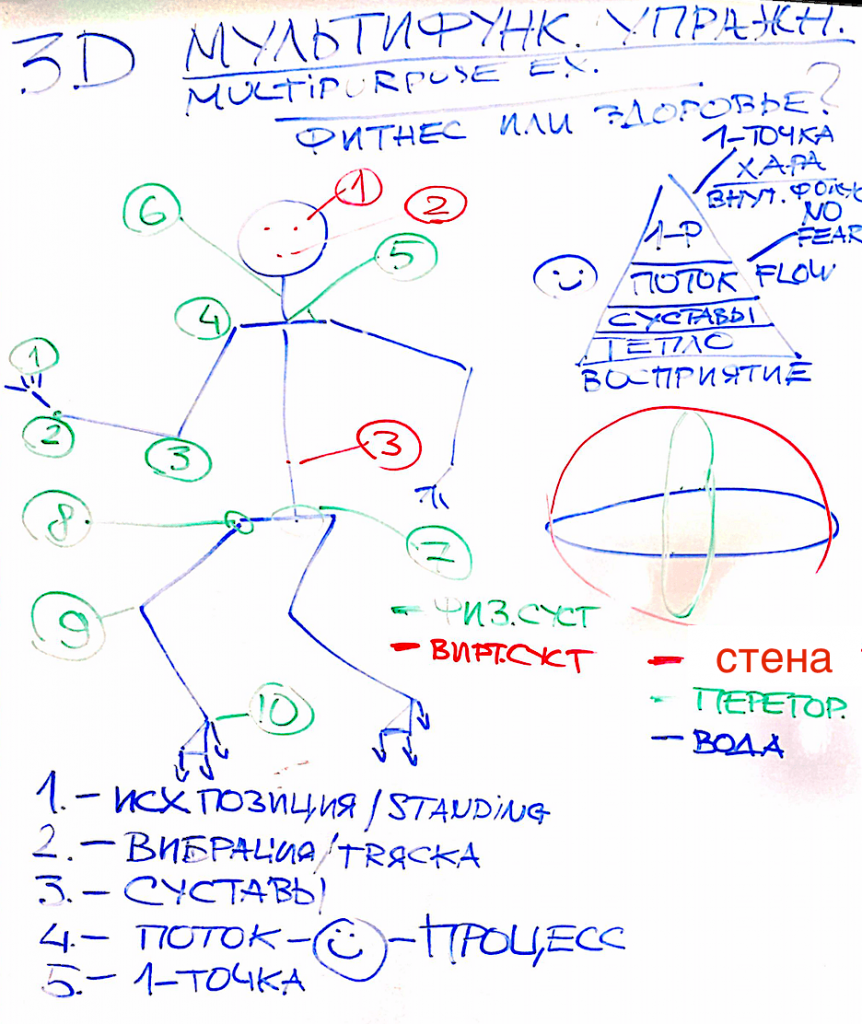 3D МУЛЬТИФУНК. УПРАЖН.
MULTIPURPUSE EX.
ФИТНЕС ИЛИ ЗДОРОВЬЕ?
1-ТОЧКА
ХАРА
ВНУТ. ФОКУС
NO
FEAR
1-Р
ПОТОК FLOW
СУСТАВЫ
ТЕПЛО
ВОСПРИЯТИЕ
1
2
6
5
4
1
2
3
3
8
7
9
10
- ФИЗ.СУСТ
- ВИРТ.СУСТ
- стена
- ПЕРЕГОР.
- ВОДА
1.- ИСХ ПОЗИЦИЯ/STANDING
2.- ВИБРАЦИЯ/TRЯСКА
3.- СУСТАВЫ
4.- ПОТОК - - ПРОЦЕСС
5.- 1-ТОЧКА